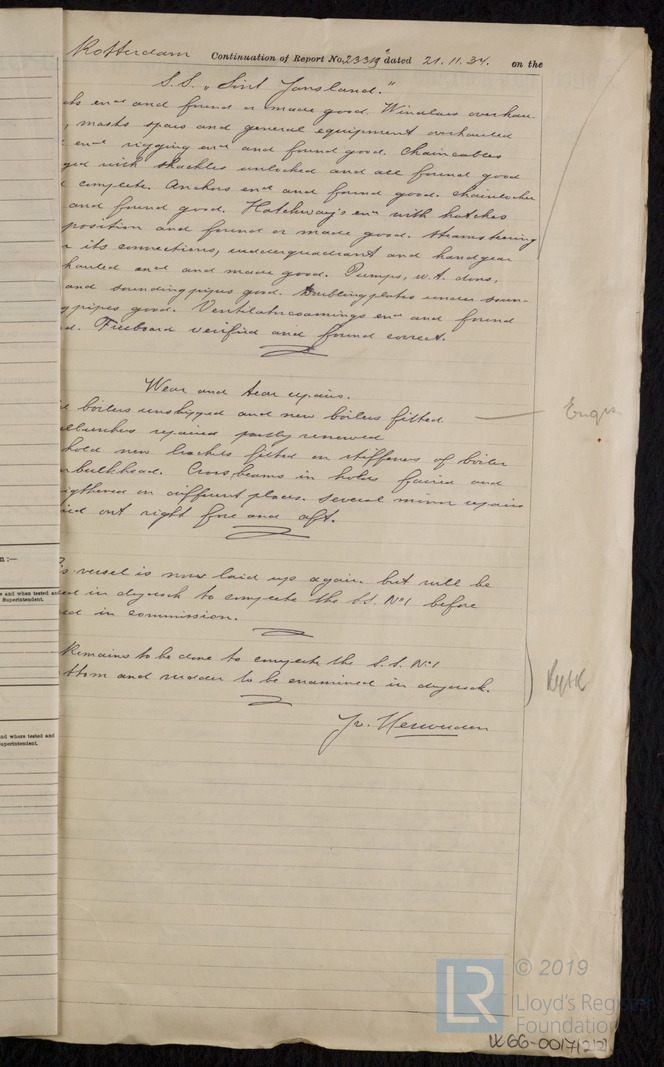 Rotterdam Continuation of Report No. 23319 dated 21.11.34. on the
S.S. "Sint Jansland."
and found or made good. Windlass overhau-
, masts spars and general equipment overhauled
rigging and found good. Chaincables
with shackles unlocked and all found good
complete. Anchors and found good. Chainlocker
and found good. Hatchways with hatches
position and found or made good. Steamsteering
its connections, rudderquadrant and handgear
hauled and made good. Pumps, w.t. doors,
and soundingpipes good. Doublingplates under soun-
pipes good. Ventilatorcoamings and found
d. Freeboard verified and found correct.
Wear and tear repairs.
boilers unshipped and new boilers fitted
Engrs
bunkers repaired partly renewed
hold new brackets fitted on stiffeners of boiler
bulkhead. Cross beams in holds faired and
gthened on different places. Several minor repairs
ied out right fore and aft.
s vessel is now laid up again but will be
ed in drydock to complete the S.S. No1 before
ed in commission.
Remains to be done to complete the S.S. No1
ttom and rudder to be examined in drydock.
n:—
e and when tested and
Superintendent.
nd where tested and
uperintendent.
LR © 2019
Lloyd's Register
Foundation
W66-0017(2/2)